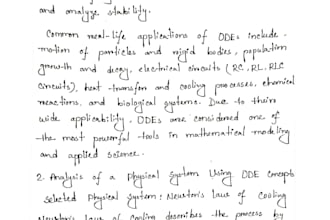 and analyze stability.
Common real-life applications of ODEs include -
motion of particles and rigid bodies, population
growth and decay, electrical circuits (RC, RL, RLC
circuits), heat transfer and cooling processes, chemical
reactions, and biological systems. Due to their
wide applicability, ODEs are considered one of
the most powerful tools in mathematical modeling
and applied science.
2. Analysis of a Physical System Using ODE Concepts
selected Physical system: Newton's law of Cooling
Newton's law of Cooling describes the process by